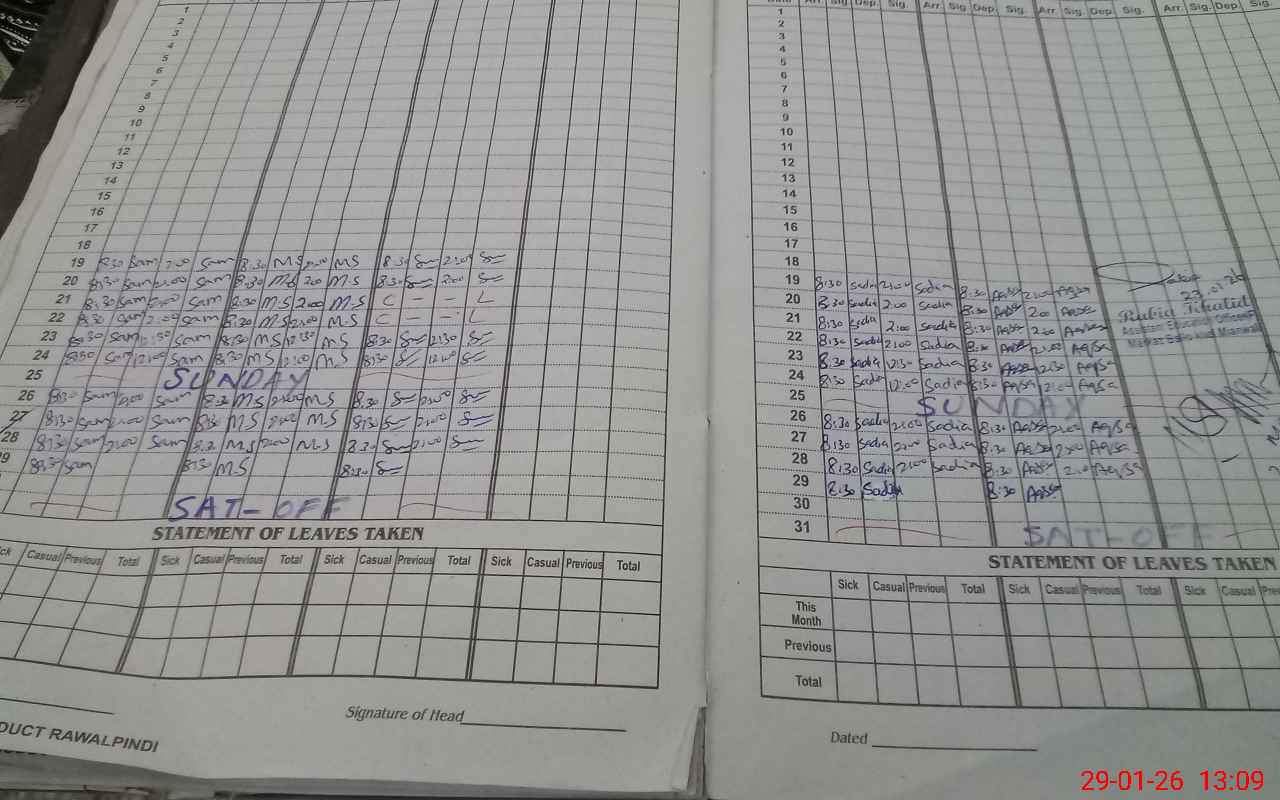 Arr. Sig. Dep. Sig. Arr. Sig. Dep. Sig. Arr. Sig. Dep. Sig. Arr. Sig. Dep. Sig.
1
2
3
4
5
6
7
8
9
10
11
12
13
14
15
16
17
18
19 8:30 Sam 2:00 Sam 8:30 MS 2:00 MS 8:30 2:00
20 8:30 Sam 2:00 Sam 8:30 M.S 2:00 M.S 8:30 2:00
21 8:30 Sam 2:00 Sam 8:30 M.S 2:00 M.S C - - L
22 8:30 Sam 2:00 Sam 8:30 MS 2:00 M.S C - - L
23 8:30 Sam 12:30 Sam 8:30 MS 12:30 MS 8:30 12:30
24 8:30 Sam 12:00 Sam 8:30 MS 12:00 MS 8:30 12:00
25 SUNDAY
26 8:30 Sam 2:00 Sam 8:30 MS 2:00 MS 8:30 2:00
27 8:30 Sam 2:00 Sam 8:30 MS 2:00 MS 8:30 2:00
28 8:30 Sam 2:00 Sam 8:30 MS 2:00 M.S 8:30 2:00
8:30 Sam 8:30 M.S 8:30
SAT-OFF
STATEMENT OF LEAVES TAKEN
Casual Previous Total Sick Casual Previous Total Sick Casual Previous Total Sick Casual Previous Total
Signature of Head
DUCT RAWALPINDI
1
2
3
4
5
6
7
8
9
10
11
12
13
14
15
16
17
18
19 8:30 Sadia 2:00 Sadia 8:30 Aqsa 2:00 Aqsa
20 8:30 Sadia 2:00 Sadia 8:30 Aqsa 2:00 Aqsa
21 8:30 Sadia 2:00 Sadia 8:30 Aqsa 2:00 Aqsa
22 8:30 Sadia 2:00 Sadia 8:30 Aqsa 2:00 Aqsa
23 8:30 Sadia 12:30 Sadia 8:30 Aqsa 12:30 Aqsa
24 8:30 Sadia 12:00 Sadia 8:30 Aqsa 12:00 Aqsa
25 SUNDAY
26 8:30 Sadia 2:00 Sadia 8:30 Aqsa 2:00 Aqsa
27 8:30 Sadia 2:00 Sadia 8:30 Aqsa 2:00 Aqsa
28 8:30 Sadia 2:00 Sadia 8:30 Aqsa 2:00 Aqsa
29 8:30 Sadia 8:30 Aqsa
30
31 SAT-OFF
Rubia Khalid
Assistant Education Officer
STATEMENT OF LEAVES TAKEN
Sick Casual Previous Total Sick Casual Previous Total Sick
This Month
Previous
Total
Dated
29-01-26 13:09